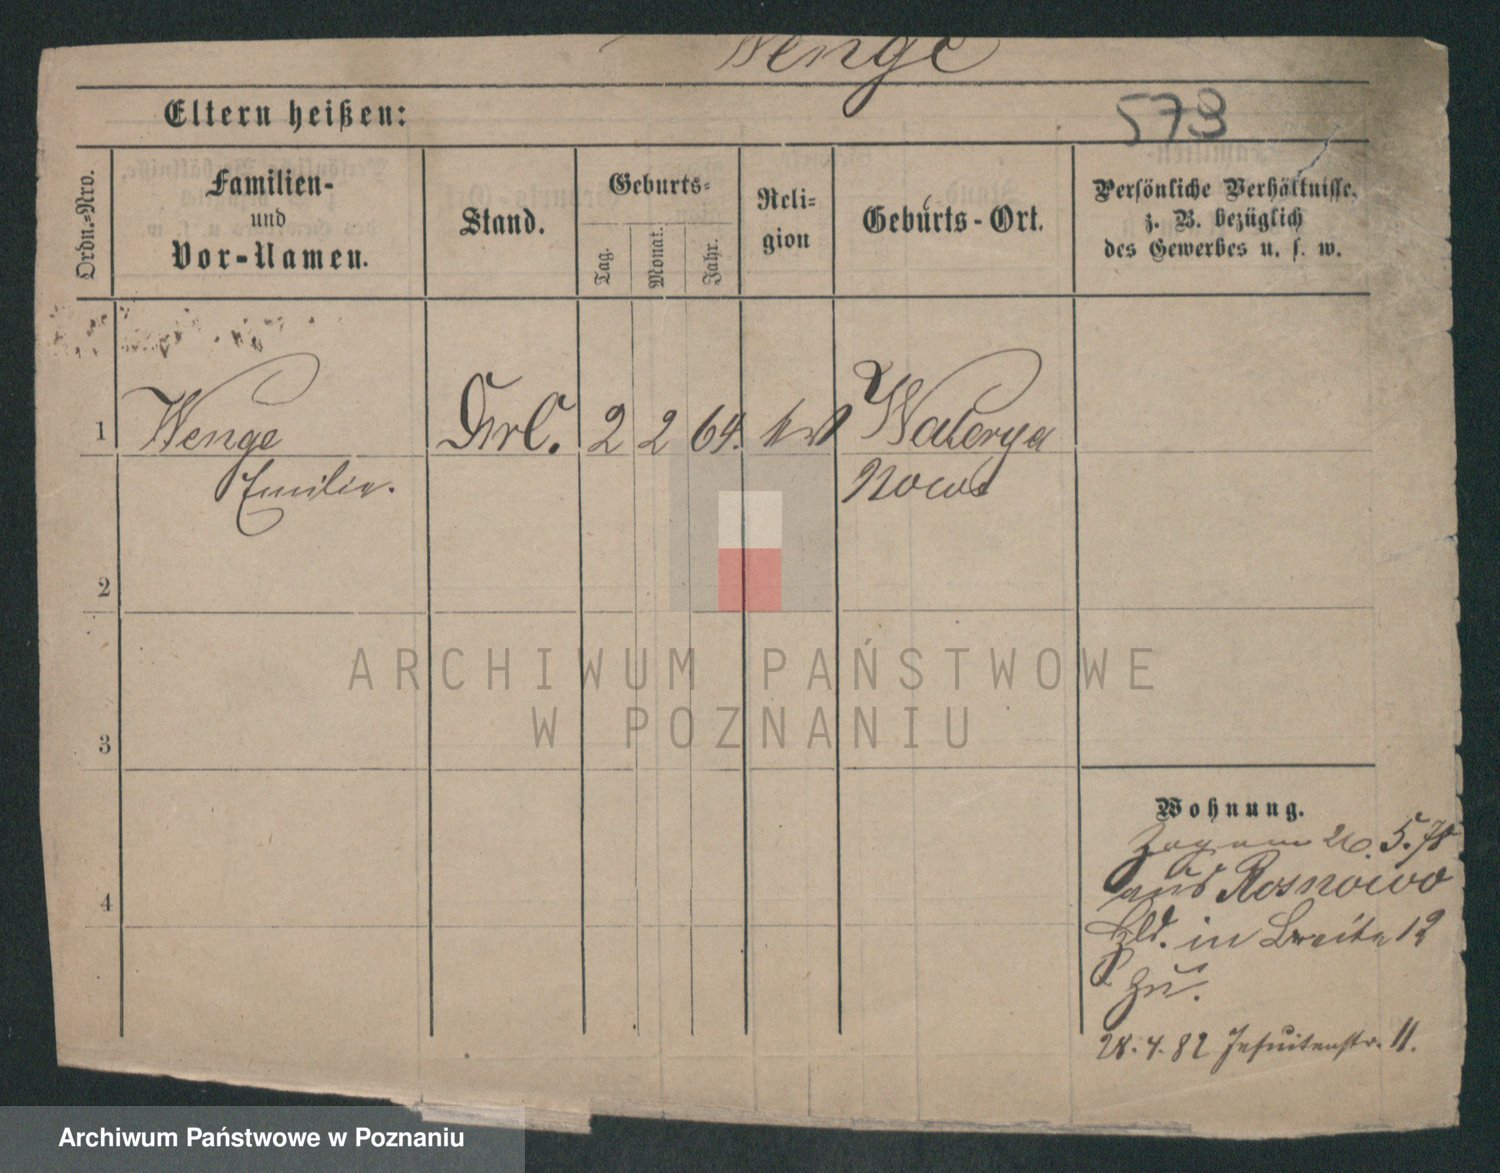 Wenge
573
Eltern heißen:
Ordn.=Nro.
Familien-
und
Vor-Namen.
Stand.
Geburts=
Tag.
Monat.
Jahr.
Reli=
gion
Geburts-Ort.
Persönliche Verhältnisse,
z. B. bezüglich
des Gewerbes u. s. w.
1 Wenge Frl. 2 2 64. Waterya
Emilie. Nowa
2
3
4
Wohnung.
Zog am 26.5.78
aus Rosnowo
Hld. in Breite 12
zu.
28.4.82 Jesuitenstr. 11.
ARCHIWUM PAŃSTWOWE
W POZNANIU
Archiwum Państwowe w Poznaniu